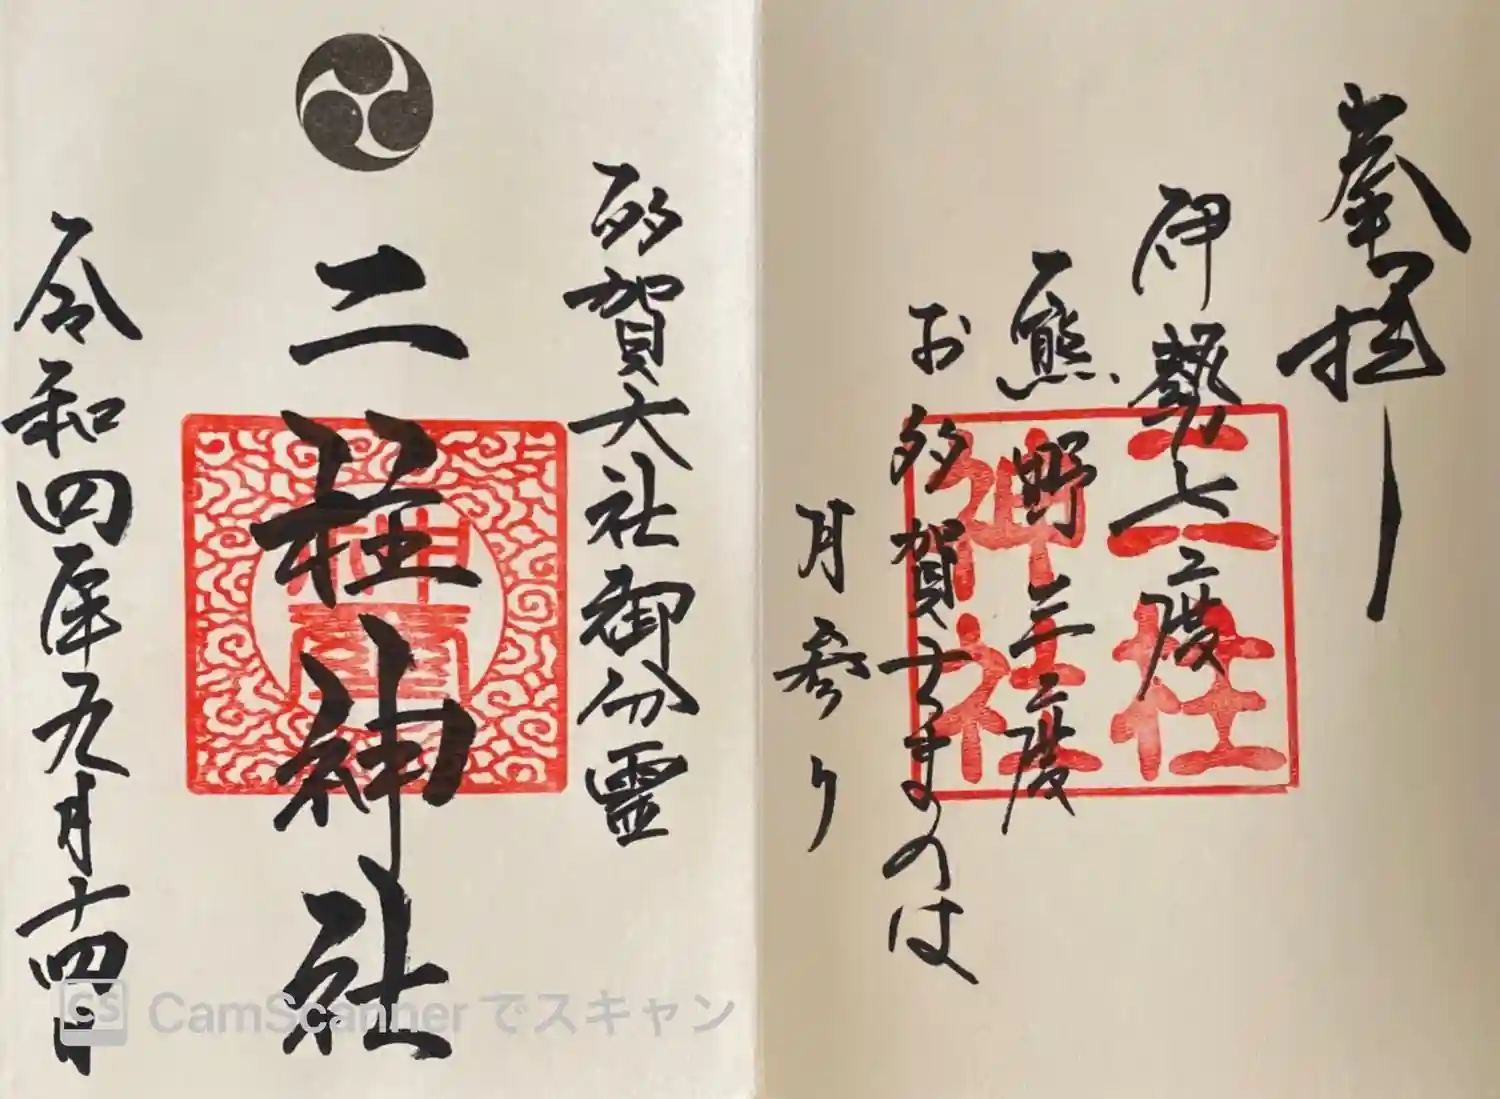 奉拝
伊勢七度
熊野三度
お多賀さまのは
月参り
二柱
神社
多賀大社御分霊
二柱神社
令和四年九月十四日
CS CamScannerでスキャン